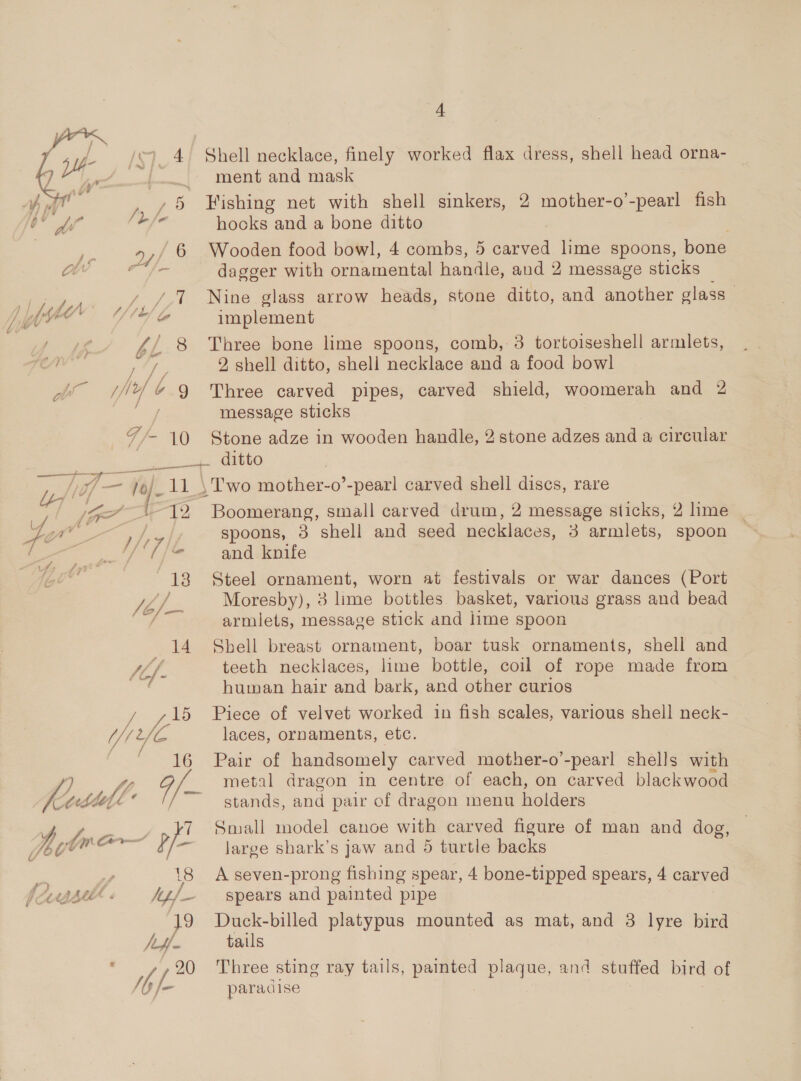 4
4 Shell necklace, finely worked flax dress, shell head orna-
ment and mask
5 Fishing net with shell sinkers, 2 mother-o'-pearl fish
hocks and a bone ditto
6 Wooden food bowl, 4 combs, 5 carved lime spoons, bone
dagger with ornamental handle, and 2 message sticks
7 Nine glass arrow heads, stone ditto, and another glass
implement
8 Three bone lime spoons, comb, 3 tortoiseshell armlets,
2 shell ditto, shell necklace and a food bowl
9 Three carved pipes, carved shield, woomerah and 2
message sticks
10 Stone adze in wooden handle, 2 stone adzes and a circular
ditto
11 Two mother-o'-pearl carved shell discs, rare
12 Boomerang, small carved drum, 2 message sticks, 2 lime
spoons, 3 shell and seed necklaces, 3 armlets, spoon
and knife
13 Steel ornament, worn at festivals or war dances (Port
Moresby), 3 lime bottles basket, various grass and bead
armlets, message stick and lime spoon
14 Shell breast ornament, boar tusk ornaments, shell and
teeth necklaces, lime bottle, coil of rope made from
human hair and bark, and other curios
15 Piece of velvet worked in fish scales, various shell neck-
laces, ornaments, etc.
16 Pair of handsomely carved mother-o'-pearl shells with
9/- metal dragon in centre of each, on carved blackwood
stands, and pair of dragon menu holders
17 Small model canoe with carved figure of man and dog,
large shark's jaw and 5 turtle backs
18 A seven-prong fishing spear, 4 bone-tipped spears, 4 carved
spears and painted pipe
19 Duck-billed platypus mounted as mat, and 3 lyre bird
tails
20 Three sting ray tails, painted plaque, and stuffed bird of
paradise